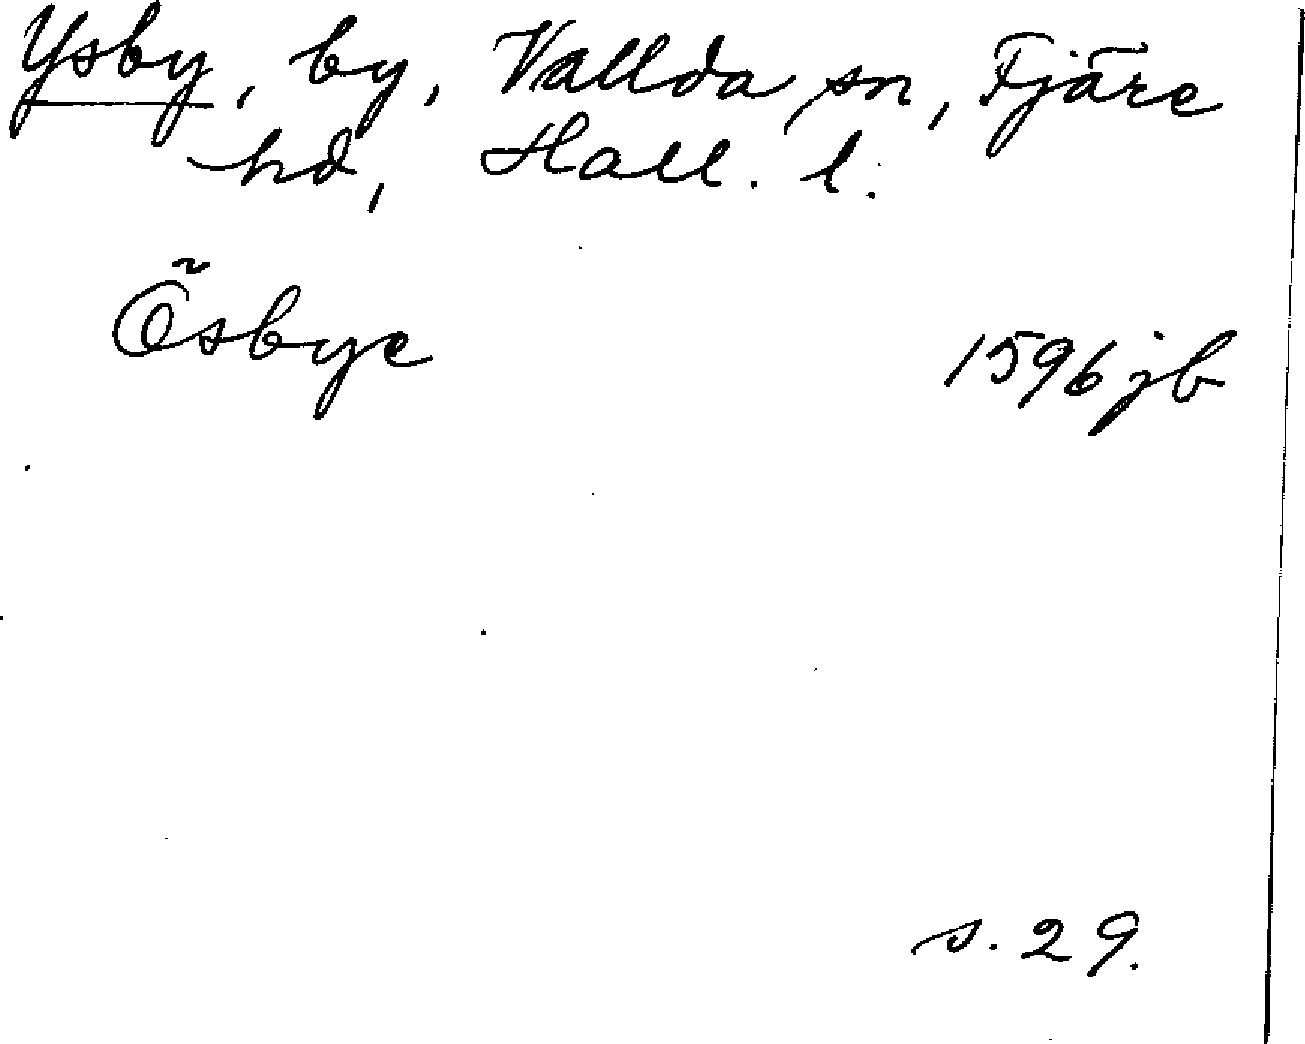 Ysby, by, Vallda sn, Fjäre
hd, Hall. l.
Ösbye 1596 jb
s. 29.